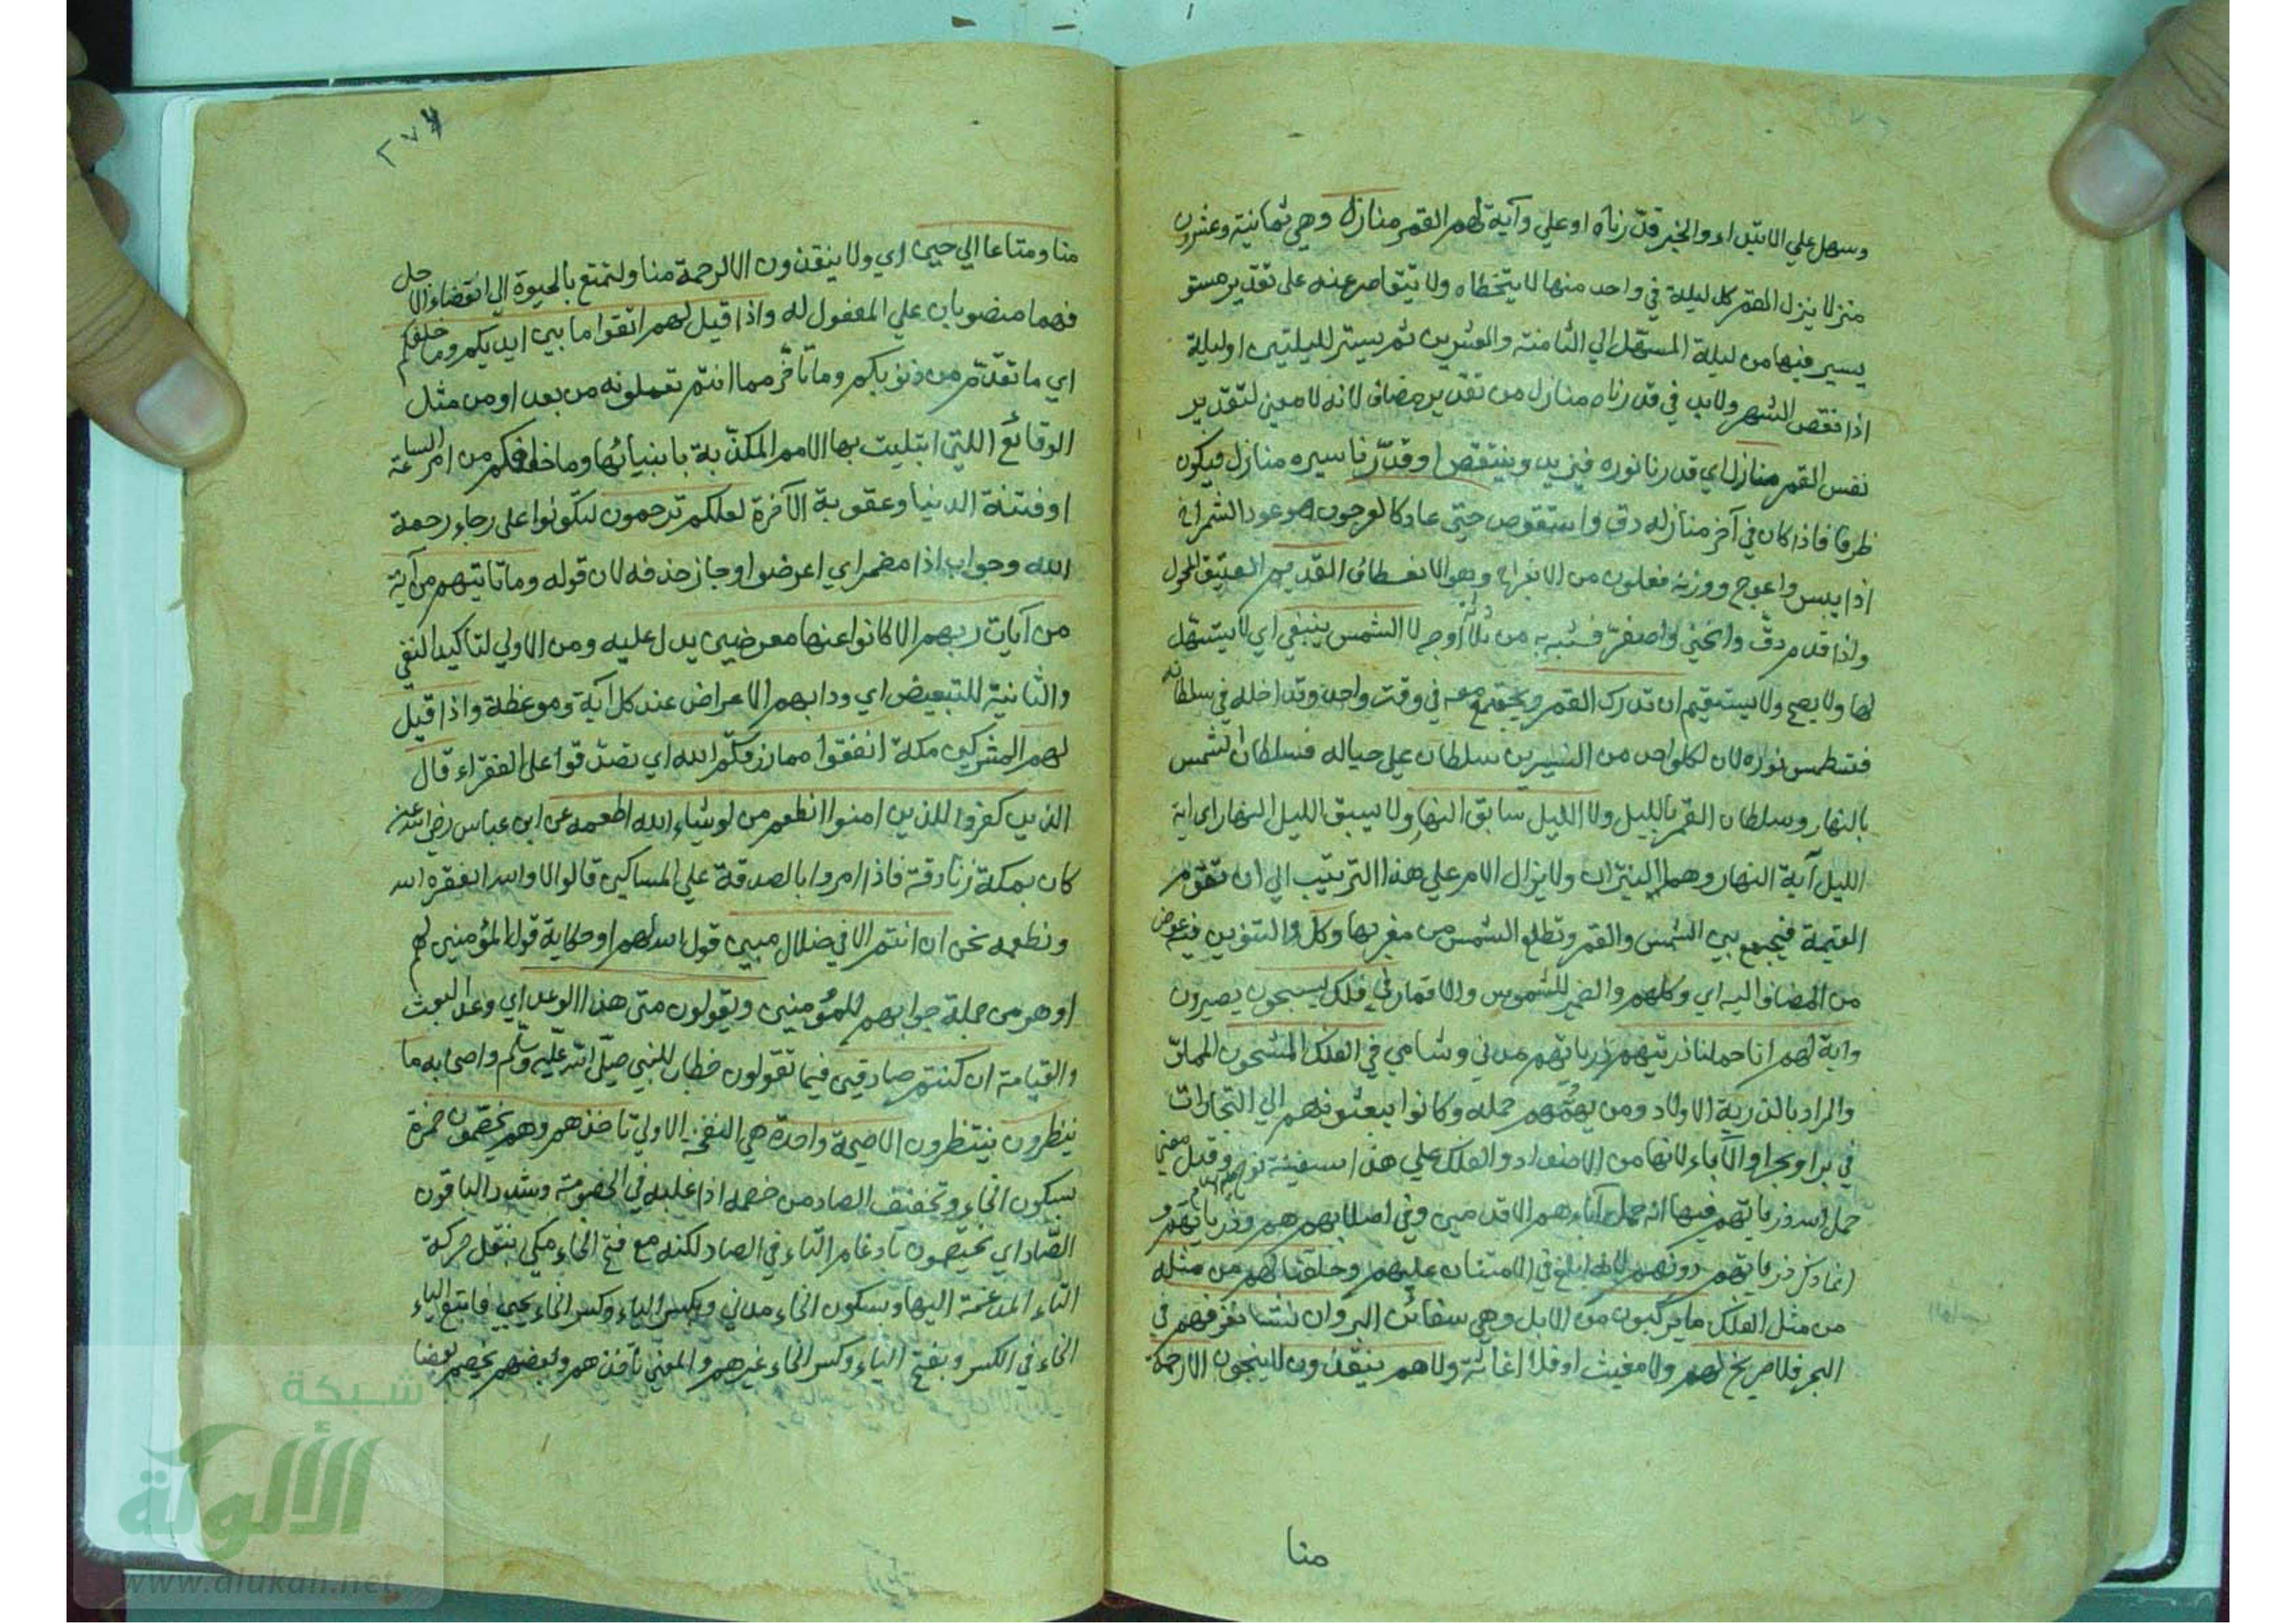 وسهل علي الابتداء والخبر قدّرناه اوعلي وآية لهم القمر منازل وهي ثمانية وعشرون
منزلا ينزل القمر كل ليلة في واحد منها لا يتخطاه ولا يتقاصر عنه على تقدير مستو
يسير فيها من ليلة المستهل الي الثامنة والعشرين ثم يستتر لليلتين اوليلة
اذا نقص الشهر ولابد في قدرناه منازل من تقدير مضاف لانه لا معني لتقدير
نفس القمر منازل اي قدرنا نوره فيزيد وينتقص اوقدّرنا سيره منازل فيكون
ظرفا فاذا كان في آخر منازله دق واستقوص حتي عاد كالعرجون هو عود الشمراخ
اذا يبس واعوج ووزنه فعلون من الانعراج وهو الانعطاف القديم العتيق المحول
واذا قدم دقّ وانحني واصفرّ فشبه به من ثلاثة اوجه لا الشمس ينبغي اي لا يتسهل
لها ولا يصح ولا يستقيم ان تدرك القمر ويجتمع معه في وقت واحد وتداخله في سلطانه
فتطمس نوره لان لكلواحد من النيرين سلطان علي حياله فسلطان الشمس
بالنهار وسلطان القمر بالليل ولا الليل سابق النهار ولا يسبق الليل النهار اي اية
الليل آية النهار وهما النيران ولا يزال الامر علي هذا الترتيب الي ان تقوم
القيمة فيجمع بين الشمس والقمر وتطلع الشمس من مغربها وكل والتنوين فيه عوض
من المضاف اليه اي وكلهم والضمير للشموس والاقمار في فلك يسبحون يصيرون
واية لهم انا حملنا ذريتهم ذرياتهم مدني وشامي في الفلك المشحون المملق
والمراد بالذرية الاولاد ومن يهمّهم حمله وكانوا يبعثونهم الي التجارات
في بر اوبحر او الآباء لانها من الاضداد والفلك علي هذا سفينة نوح عليه السلام وقيل معني
حمل الله ذرياتهم فيها انه حمل آباءهم الاقدمين وفي اصلابهم هم وذرياتهم و
انما ذكر ذرياتهم دونهم لانه ابلغ في الامتنان عليهم وخلقنا لهم من مثله
من مثل الفلك ما يركبون من الابل وهي سفائن البر وان نشا نغرقهم في
البحر فلا صريخ لهم ولا مغيث اوفلا اغاثة ولا هم ينقذون لا ينجون الا رحمة
منا
٢٧٧
منا ومتاعا الي حين اي ولا ينقذون الا لرحمة منا ولتمتع بالحيوة الي انقضاء الاجل
فهما منصوبان علي المفعول له واذا قيل لهم اتقوا ما بين ايديكم وما خلفكم
اي ما تقدّم من ذنوبكم وما تأخّر مما انتم تعملونه من بعد اومن مثل
الوقائع اللتي ابتليت بها الامم المكذّبة بانبيائها وما خلفكم من امر الساعة
اوفتنة الدنيا وعقوبة الآخرة لعلكم ترحمون لتكونوا على رجاء رحمة
الله وجواب اذا مضمر اي اعرضوا وجاز حذفه لان قوله وما تاتيهم من آية
من آيات ربهم الا كانوا عنها معرضين يدل عليه ومن الاولي لتاكيد النفي
والثانية للتبعيض اي ودابهم الاعراض عند كل آية وموعظة واذا قيل
لهم المشركين مكة انفقوا مما رزقكم الله اي تصدّقوا على الفقراء قال
الذين كفروا للذين امنوا انطعم من لو شاء الله اطعمه عن ابن عباس رضي الله عنه
كان بمكة زنادقة فاذا امروا بالصدقة علي المساكين قالوا لا والله ايفقره الله
ونطعمه نحن ان انتم الا في ضلال مبين قول الله لهم اوحكاية قول المؤمنين لهم
اوهو من جملة جوابهم للمؤمنين ويقولون متى هذا الوعد اي وعد البعث
والقيامة ان كنتم صادقين فيما تقولون خطاب للنبي صلّى الله عليه وسلّم واصحابه ما
ينظرون ينتظرون الا صيحة واحدة هي النفخة الاولي تاخذهم وهم يخصّمون حمزة
بسكون الخاء وتخفيف الصاد من خصمه اذا غلبه في الخصومة وشدد الباقون
الصّاد اي يختصمون بادغام التاء في الصاد لكنه مع فتح الخاء مكي بنقل حركة
التاء المدغمة اليها وبسكون الخاء مدني وبكسر الياء وكسر الخاء يحيي فاتبع الياء
الخاء في الكسر وبفتح الياء وكسر الخاء غيرهم والمعني تأخذهم وبعضهم يخصم بعضا
شبكة
الألوكة
www.alukah.net